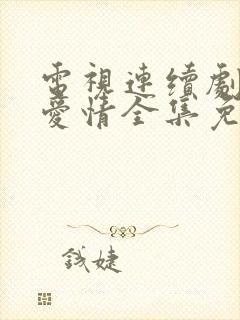 電視連續劇
愛情全集免
錢婕